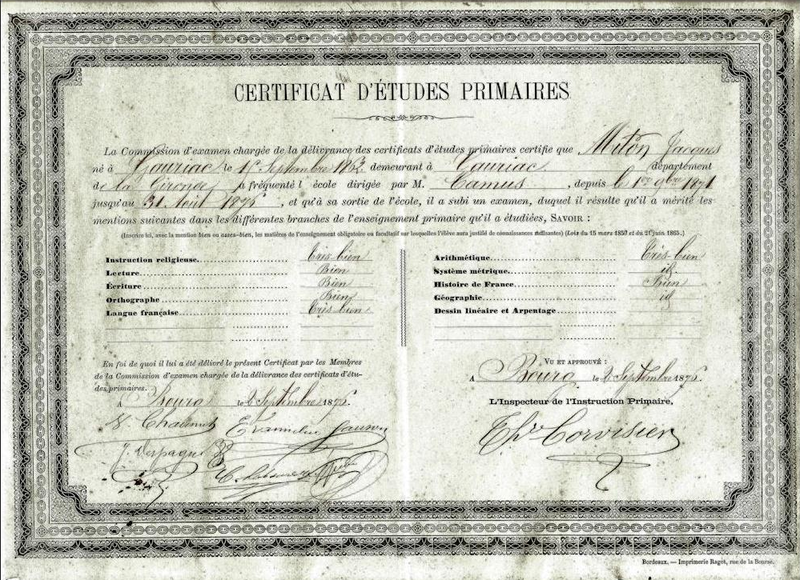 CERTIFICAT D'ÉTUDES PRIMAIRES
La Commission d'examen chargée de la délivrance des certificats d'études primaires certifie que Miton Jacques
né à Gauriac le Septembre demeurant à Gauriac département
de la Gironde, a fréquenté l'école dirigée par M. Camus, depuis le 1er 9bre 1871
jusqu'au 31 Août 1876, et qu'à sa sortie de l'école, il a subi un examen, duquel il résulte qu'il a mérité les
mentions suivantes dans les différentes branches de l'enseignement primaire qu'il a étudiées, SAVOIR :
(Inscrire ici, avec la mention bien ou assez-bien, les matières de l'enseignement obligatoire ou facultatif sur lesquelles l'élève aura justifié de connaissances suffisantes) (Lois du 15 mars 1850 et du 21 juin 1865.)
Instruction religieuse Très bien
Lecture Bien
Écriture Bien
Orthographe Bien
Langue française Très bien
Arithmétique Très bien
Système métrique id
Histoire de France Bien
Géographie id
Dessin linéaire et Arpentage
En foi de quoi il lui a été délivré le présent Certificat par les Membres
de la Commission d'examen chargée de la délivrance des certificats d'étu-
des primaires.
A Bourg le 2 Septembre 1876.
VU ET APPROUVÉ :
A Bourg le 2 Septembre 1876.
L'Inspecteur de l'Instruction Primaire,
Th. Corvisier
Bordeaux. — Imprimerie Ragot, rue de la Bourse.